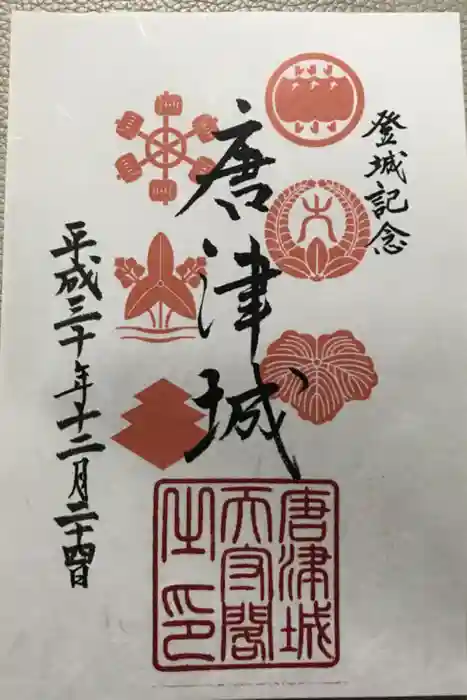 登城記念
唐津城
平成三十年十二月二十四日
唐津城
天守閣
之印